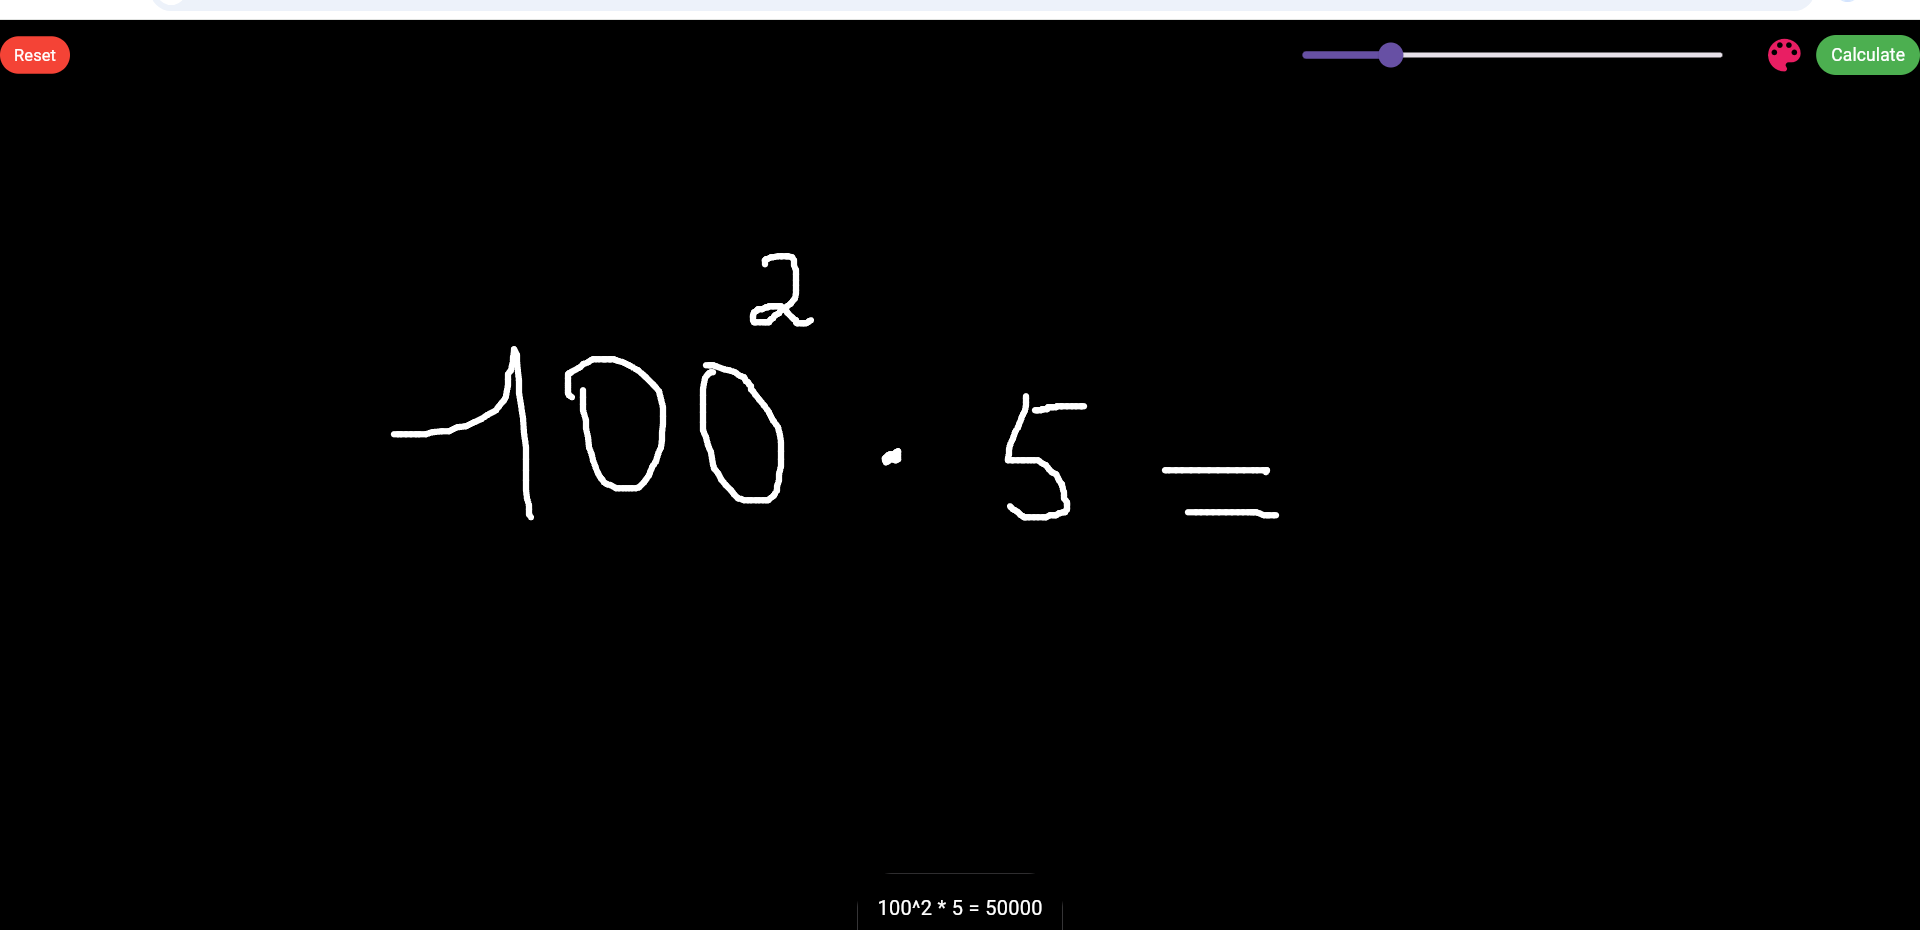 Reset
Calculate
100² · 5 =
100^2 * 5 = 50000